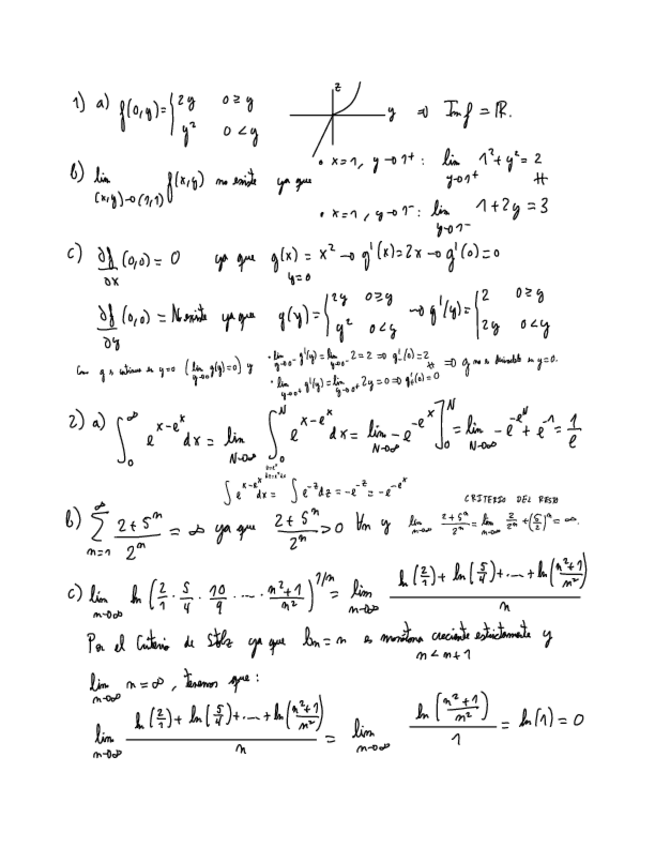 1) a) f(0,y) = { 2y  0 ≥ y ; y²  0 < y   z  y  ⇒ Im f = ℝ.
b) lim (x,y)→(1,1) f(x,y) no existe ya que
• x=1, y→1⁺ : lim y→1⁺ 1²+y² = 2
∦
• x=1, y→1⁻ : lim y→1⁻ 1+2y = 3
c) ∂f/∂x (0,0) = 0 ya que g(x) = x² → g'(x) = 2x → g'(0) = 0
y=0
∂f/∂y (0,0) = No existe ya que g(y) = { 2y  0≥y ; y²  0<y → g'(y) = { 2  0≥y ; 2y  0<y
Como g es continua en y=0 (lim y→0 g(y)=0) y
• lim y→0⁻ g'(y) = lim y→0⁻ 2 = 2 ⇒ g'₋(0) = 2
∦ ⇒ g no es derivable en y=0.
• lim y→0⁺ g'(y) = lim y→0⁺ 2y = 0 ⇒ g'₊(0) = 0
2) a) ∫₀^∞ e^(x-e^x) dx = lim N→∞ ∫₀^N e^(x-e^x) dx = lim N→∞ -e^(-e^x) ]₀^N = lim N→∞ -e^(-e^N) + e^(-1) = 1/e
∫ e^(x-e^x) dx = ∫ e^(-z) dz = -e^(-z) = -e^(-e^x)
CRITERIO DEL RESTO
b) ∑ n=1 ^∞ (2+5ⁿ)/2ⁿ = ∞ ya que (2+5ⁿ)/2ⁿ > 0 ∀n y lim n→∞ (2+5ⁿ)/2ⁿ = lim n→∞ 2/2ⁿ + (5/2)ⁿ = ∞.
c) lim n→∞ ln (2/1 · 5/4 · 10/9 · ... · (n²+1)/n²)^(1/n) = lim n→∞ (ln(2/1) + ln(5/4) + ... + ln((n²+1)/n²))/n
Por el Criterio de Stolz ya que bn = n es monótona creciente estrictamente y
n < n+1
lim n→∞ n = ∞, tenemos que:
lim n→∞ (ln(2/1) + ln(5/4) + ... + ln((n²+1)/n²))/n = lim n→∞ ln((n²+1)/n²)/1 = ln(1) = 0